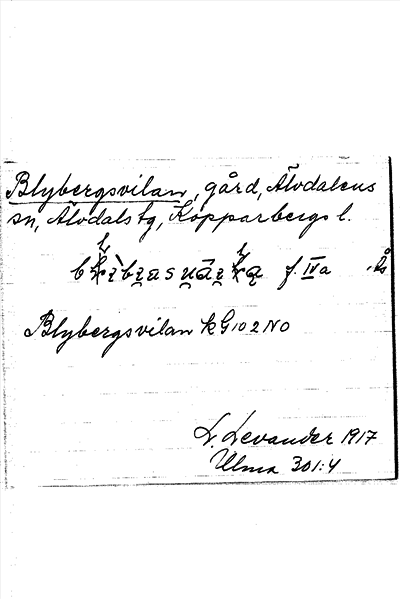 Blybergsvilan, gård, Älvdalens
sn, Älvdals tg, Kopparbergs l.
f. IVa
Blybergsvilan kG102NO
L. Levander 1917
Ulma 301:4